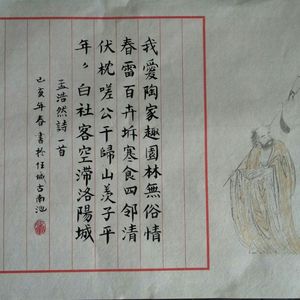 我愛陶家趣園林無俗情
春雷百卉坼寒食四邻清
伏枕嗟公干歸山羡子平
年〻白社客空滞洛陽城
孟浩然詩一首
己亥年春書於任城古南池